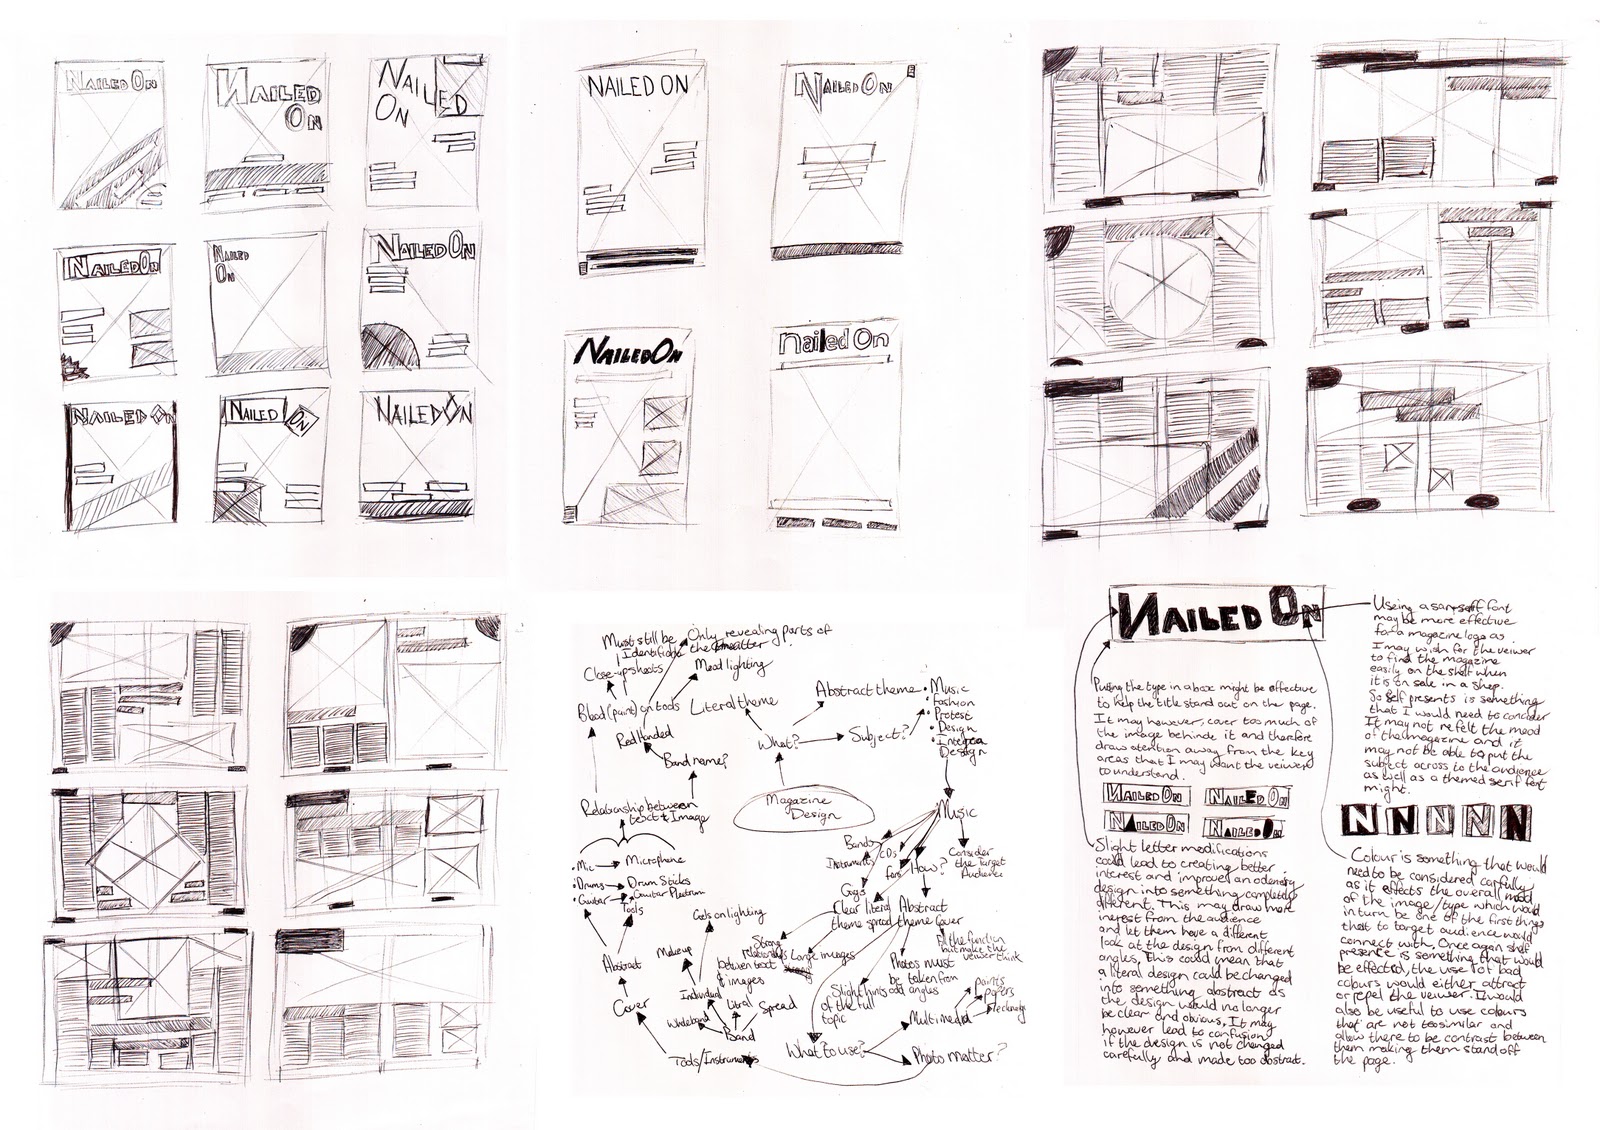 NAILED ON
NAILED
ON
NAILED
ON
NAILED ON
NAILED
ON
NAILED ON
NAILED ON
NAILED
ON
NAILED ON
NAILED ON
NAILED ON
NAILED ON
Nailed On
Must still be
Identifiable
Only revealing parts of
the
Close-up shoots
Mood lighting
Blood (paint) on tools
Literal theme
Abstract theme
• Music
• Fashyon
• Protest
• Design
• Interea
Design
Red Handed
What?
Subject?
Band name?
Relationship between
text & Image
Magazine
Design
Music
• Mic
Microphone
• Drums
Drum Sticks
• Guitar
Guitar Plectrum
Tools
Bands
Instruments
CDs
fans
How?
Consider
the Target
Audience
Gigs
Clear literal
theme spread
Abstract
theme Cover
Gels on lighting
Strong
relationship
between text
& images
Large images
Fit the function
but make the
veiwer think
Makeup
Abstract
Photos must
be taken from
odd angles
Slight hints
of the full
topic
Individual
Litral
Spread
Cover
Whole band
Band
Multimedia
paints
papers
Tools/Instruments
What to use?
Photo matter?
NAILED ON
Useing a san-seriff font
may be more effective
for a magazine logo as
I may wish for the veiwer
to find the magazine
easily on the shelf when
it is on sale in a shop.
So self presents is something
that I would need to concider
It may not reflet the mood
of the magazine and it
may not be able to put the
subject across to the audience
as well as a themed serif font
might.
Puting the type in a box might be effective
to help the title stand out on the page.
It may however, cover too much of
the image behinde it and therefore
draws atention away from the key
areas that I may want the veiwers
to understand.
NAILED ON
NAILED ON
NAILED ON
NAILED ON
N N N N N
Slight letter modifications
could lead to creating better
interest and improve an odenery
design into something completely
different. This may draw more
inerest from the audience
and let them have a different
look at the design from different
angles, This could mean that
a literal design could be changed
into something abstract as
the design would no longer
be clear and obvious, It may
however lead to confusion
if the design is not changed
carefully and made too abstrat.
Colour is something that would
need to be considered carfully
as it effects the overall mood
of the image/type which would
in turn be one of the first things
that to target audience would
connect with. Once again shelf
presence is something that would
be effected, the use fot bad
colours would either attract
or repel the veiwer. I would
also be useful to use colours
that are not too similar and
allow there to be contrast between
them making them stand off
the page.